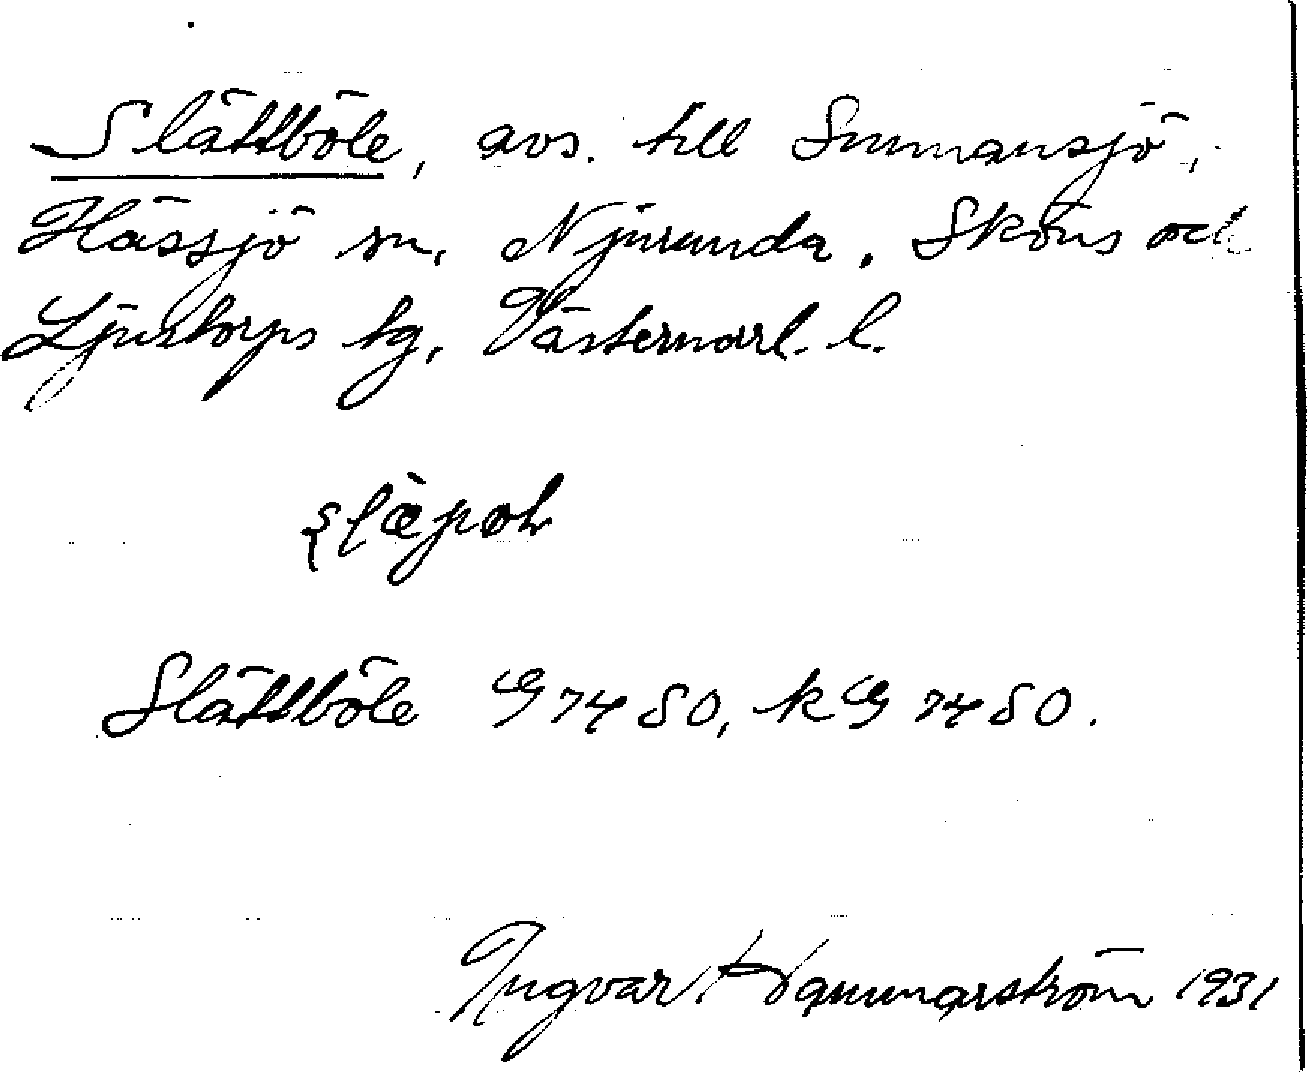 Slättböle, avs. till Summansjö,
Hässjö sn, Njurunda, Sköns och
Ljustorps tg, Västernorrl. l.
Slättböle G 7480, kG 7480.
Ingvar Hammarström 1931